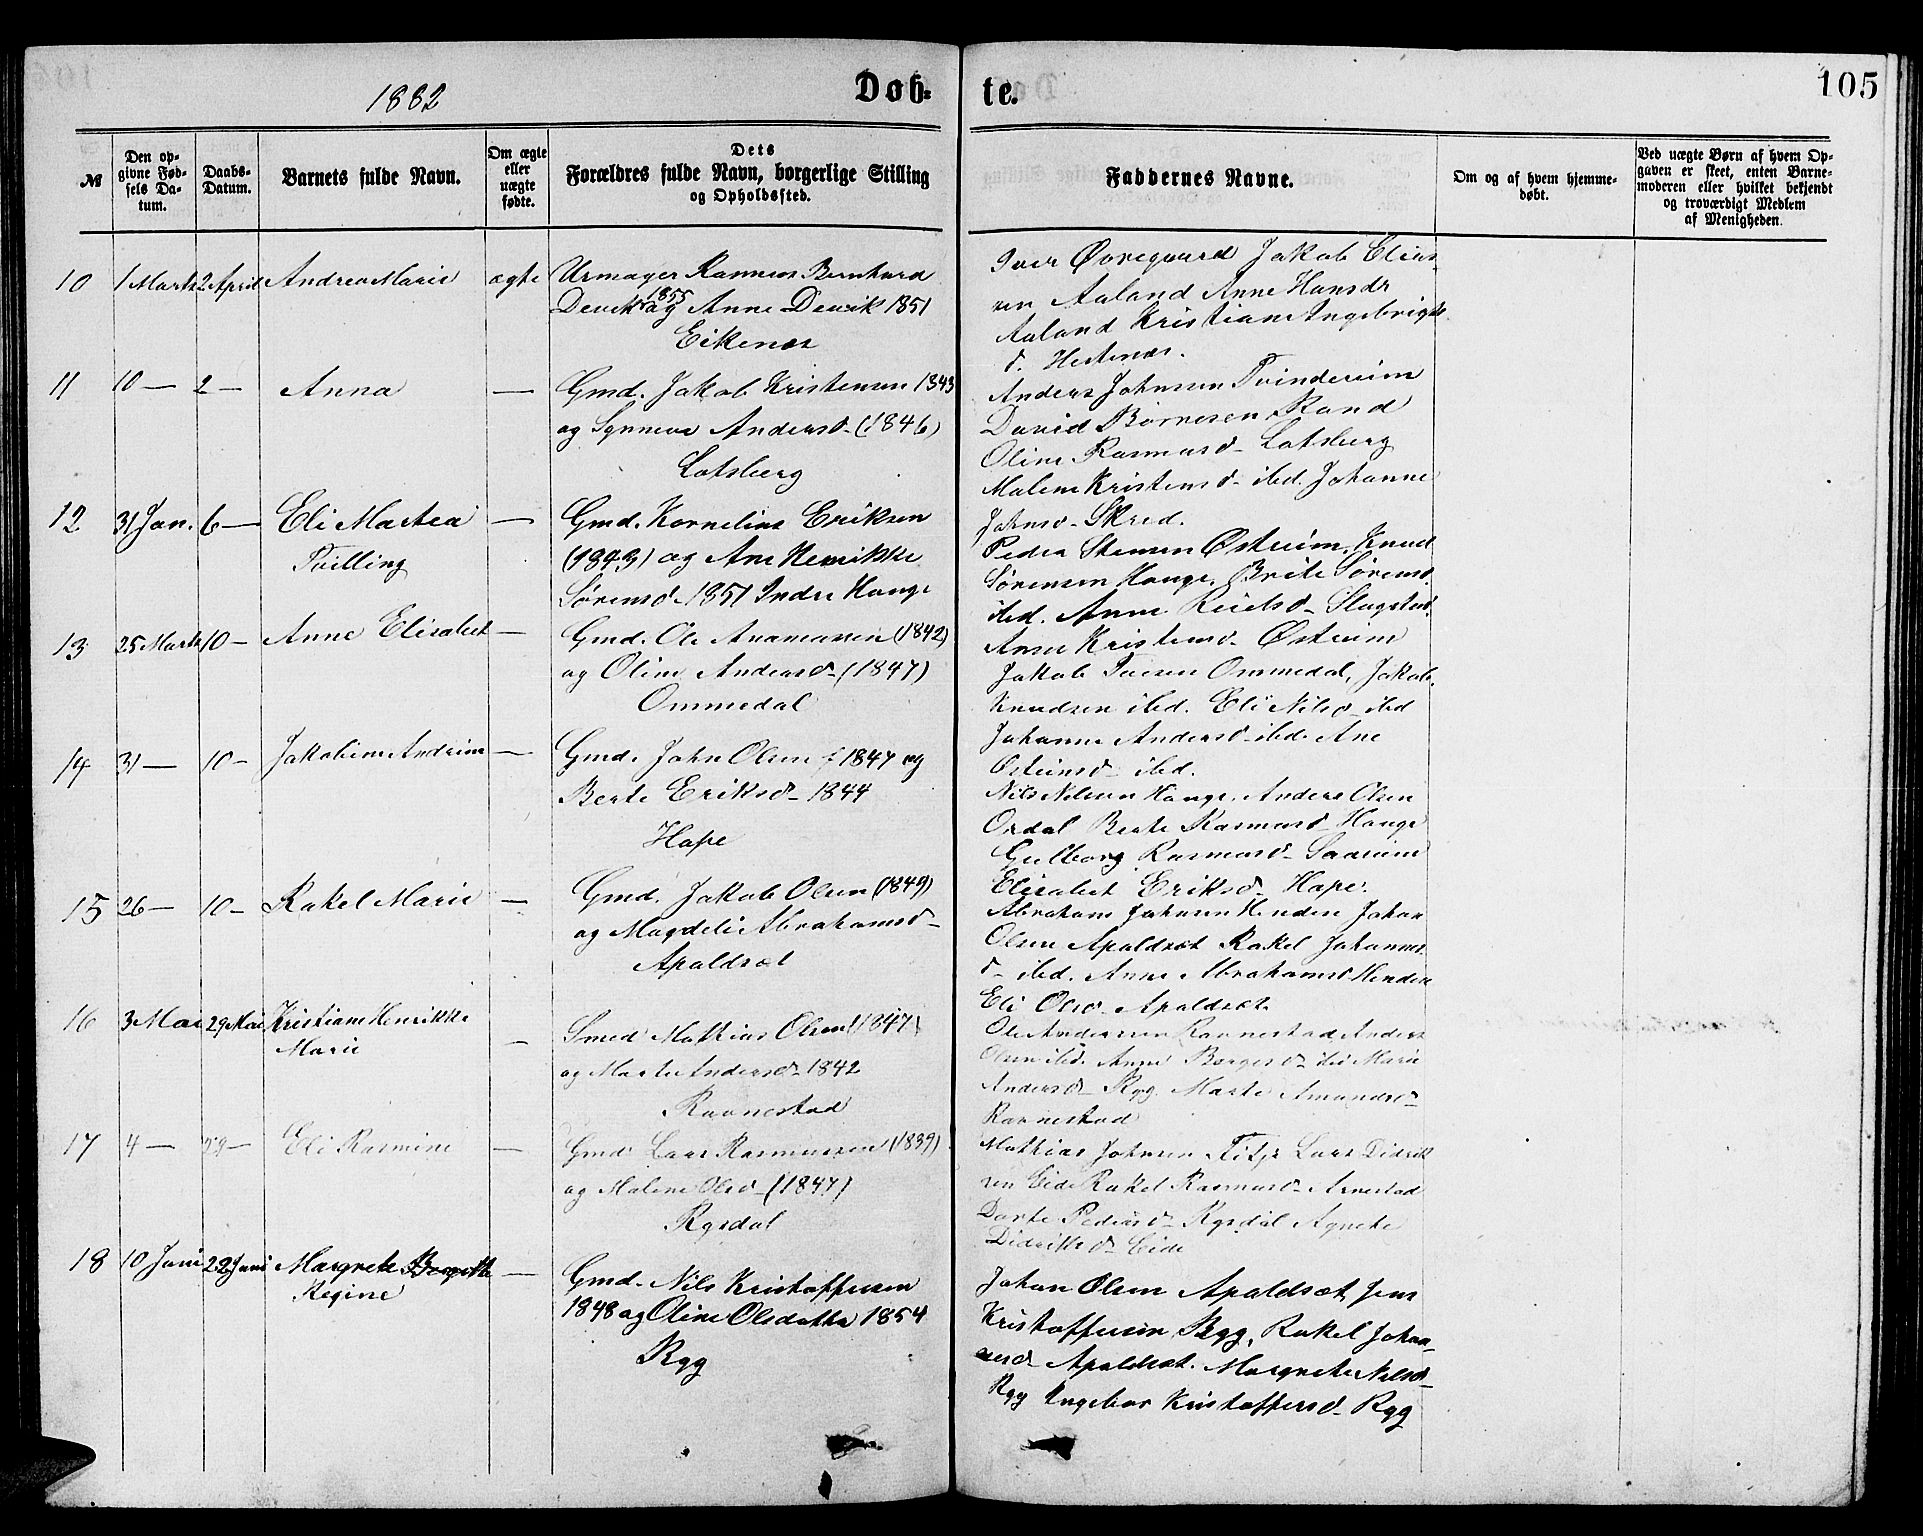 1882
Døb-
te.
105
№
Den op-
givne Fød-
sels Da-
tum.
Daabs-
Datum.
Barnets fulde Navn.
Om ægte
eller
uægte
fødte.
Dets
Forældres fulde Navn, borgerlige Stilling
og Opholdssted.
Faddernes Navne.
Om og af hvem hjemme-
døbt.
Ved uægte Børn af hvem Op-
gaven er skeet, enten Barne-
moderen eller hvilket bekjendt
og troværdigt Medlem
af Menigheden.
10 1 Marts 2 April Andrea Marie ægte Urmager Rasmus Bernhard
Devik 1855 og Anne Devik 1851
Eikenæs
Iver Øvregaard Jakob Elias-
sen Aaland Anne Hansdr
Aaland Kristiane Ingebrigts
d. Hestenæs.
11 10 — 2 — Anna — Gmd. Jakob Kristensen 1843
og Synneva Andersd. (1846)
Lotsberg
Anders Johnsen Tvindereim
David Børnesen Rand
Oline Rasmusd. Lotsberg
Malene Kristensd. ibd. Johanne
Johnsd. Skred.
12 31 Jan. 6 — Eli Martea — Gmd. Kornelius Eriksen
Tvilling (1843) og Ane Henrikke
Sørensd. 1851 Indre Hauge
Peder Stensen Østreim, Knud
Sørensen Hauge. Brite Sørensd.
ibd. Anne
Anne Kristensd. Østreim
13 25 Marts 10 — Anne Elisabet — Gmd. Ole Anamassen (1842)
og Oline Andersd. (1847)
Ommedal
Jakob Iversen Ommedal, Jakob
Knudsen ibd. Eli Nilsd. ibd
Johanne Andersd. ibd. Ane
Østeinsd. ibd.
14 31 — 10 — Jakobine Andrine — Gmd. John Olsen 1847 og
Berte Eriksd. 1844
Hope
Nils Nilsen Hauge, Anders Olsen
Ordal Berte Rasmusd. Hauge
Gulborg Rasmusd. Saareim
Elisabet Eriksd. Hope.
15 26 — 10 — Rakel Marie — Gmd. Jakob Olsen (1849)
og Magdeli Abrahamsd.
Apaldsæt
Abraham Johnsen Henden Johan
Olsen Apaldsæt Rakel Johannes
d. ibd. Anne Abrahamsd Henden
Eli Olsd. Apaldsæt
16 3 Mai 29 Mai Kristiane Henrikke
Marie — Smed Mathias Olsen (1847)
og Marte Andersd. 1842
Ravnestad
Ole Andersen Ravnestad Anders
Olsen ibd. Anne Børgesd. ibd Marie
Andersd. Ryg. Marte Amundsd.
Ravnestad
17 4 — 29 — Eli Rasmine — Gmd. Lars Rasmussen (1839)
og Malene Olsd. (1847)
Rysdal
Mathias Johnsen Fitje Lars Didrik
sen Eide Rakel Rasmusd. Arnestad
Dorte Pedersd. Rysdal Agnete
Didriksd. Eide
18 10 Juni 22 Juni Margrete Bergitte
Regine — Gmd. Nils Kristoffersen
1848 og Oline Olsdatter 1854
Ryg
Johan Olsen Apaldsæt Jens
Kristoffersen Ryg, Rakel Johan-
nesd. Apaldsæt. Margrete Nilsd.
Ryg Ingebor Kristoffersd. Ryg